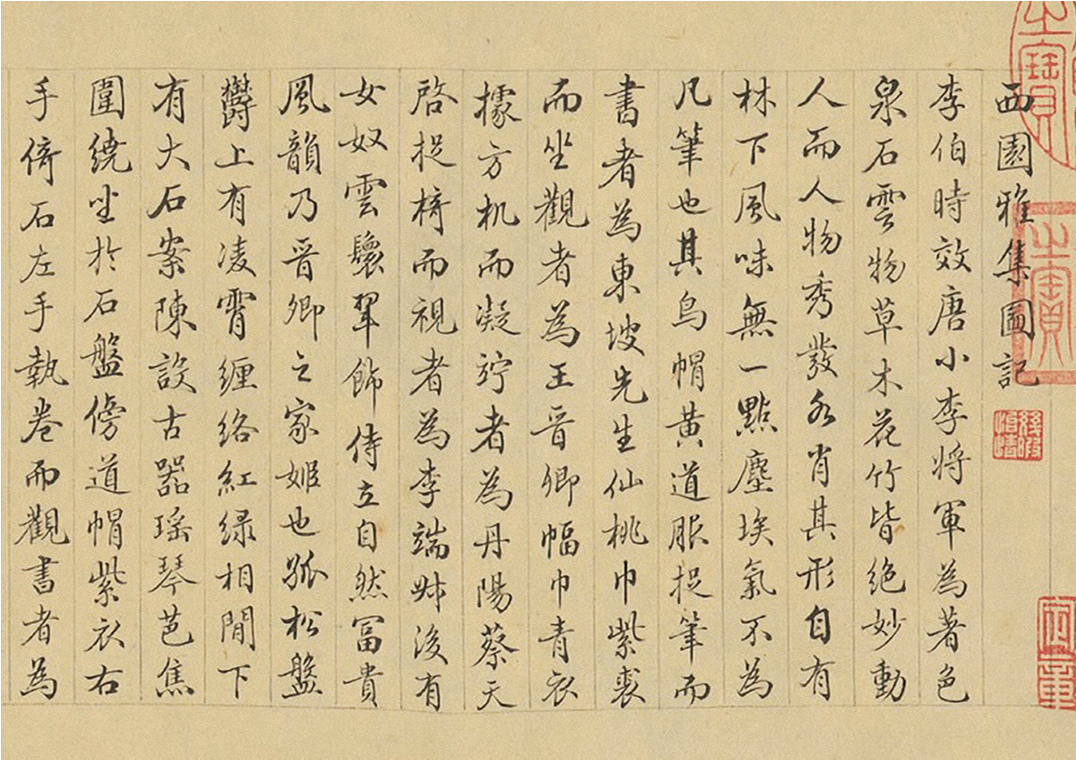 西園雅集圖記
李伯時效唐小李將軍為著色
泉石雲物草木花竹皆絕妙動
人而人物秀發各肖其形自有
林下風味無一點塵埃氣不為
凡筆也其烏帽黃道服捉筆而
書者為東坡先生仙桃巾紫裘
而坐觀者為王晉卿幅巾青衣
據方机而凝竚者為丹陽蔡天
啓捉椅而視者為李端叔後有
女奴雲鬟翠飾侍立自然富貴
風韻乃晉卿之家姬也孤松盤
欝上有凌霄纏絡紅綠相間下
有大石案陳設古器瑤琴芭焦
圍繞坐於石盤傍道帽紫衣右
手倚石左手執卷而觀書者為